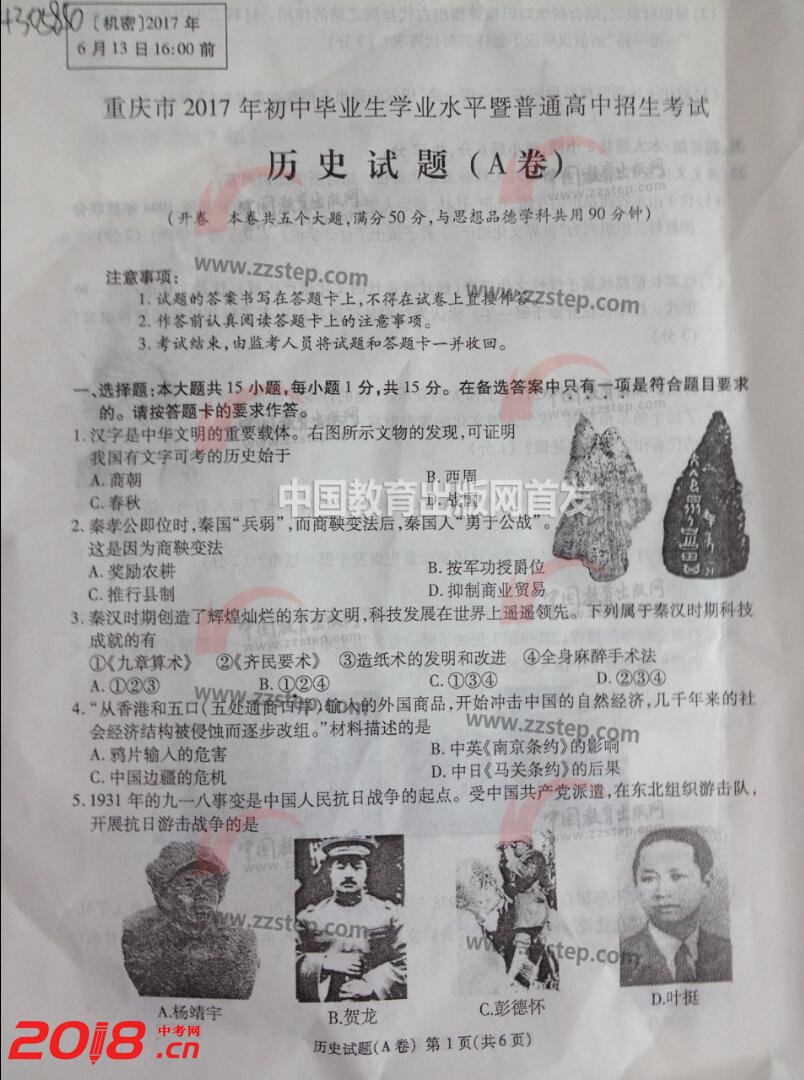 430580
［机密］2017 年
6 月 13 日 16:00 前
重庆市 2017 年初中毕业生学业水平暨普通高中招生考试
历 史 试 题 (A 卷)
(开卷　本卷共五个大题,满分 50 分,与思想品德学科共用 90 分钟)
注意事项:
1. 试题的答案书写在答题卡上,不得在试卷上直接作答。
2. 作答前认真阅读答题卡上的注意事项。
3. 考试结束,由监考人员将试题和答题卡一并收回。
一、选择题:本大题共 15 小题,每小题 1 分,共 15 分。在备选答案中只有一项是符合题目要求
的。请按答题卡的要求作答。
1. 汉字是中华文明的重要载体。右图所示文物的发现,可证明
我国有文字可考的历史始于
A. 商朝 B. 西周
C. 春秋 D. 战国
2. 秦孝公即位时,秦国“兵弱”,而商鞅变法后,秦国人“勇于公战”。
这是因为商鞅变法
A. 奖励农耕 B. 按军功授爵位
C. 推行县制 D. 抑制商业贸易
3. 秦汉时期创造了辉煌灿烂的东方文明,科技发展在世界上遥遥领先。下列属于秦汉时期科技
成就的有
①《九章算术》 ②《齐民要术》 ③造纸术的发明和改进 ④全身麻醉手术法
A. ①②③ B. ①②④ C. ①③④ D. ②③④
4. “从香港和五口(五处通商口岸)输入的外国商品,开始冲击中国的自然经济,几千年来的社
会经济结构被侵蚀而逐步改组。”材料描述的是
A. 鸦片输入的危害 B. 中英《南京条约》的影响
C. 中国边疆的危机 D. 中日《马关条约》的后果
5. 1931 年的九一八事变是中国人民抗日战争的起点。受中国共产党派遣,在东北组织游击队,
开展抗日游击战争的是
A.杨靖宇 B.贺龙 C.彭德怀 D.叶挺
历史试题(A 卷) 第 1 页(共 6 页)
中国教育出版网首发
中国教育出版网
www.zzstep.com
2018 中考网
.cn